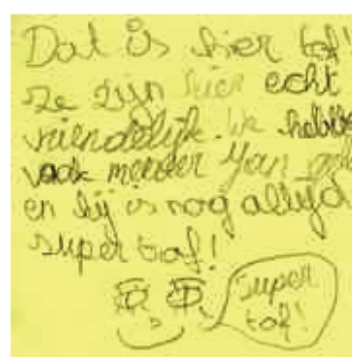 Dat is hier tof!
ze zijn hier echt
vriendelijk. We hebbe
vaak meester Yan
en hij is nog altijd
super tof!
super
tof!